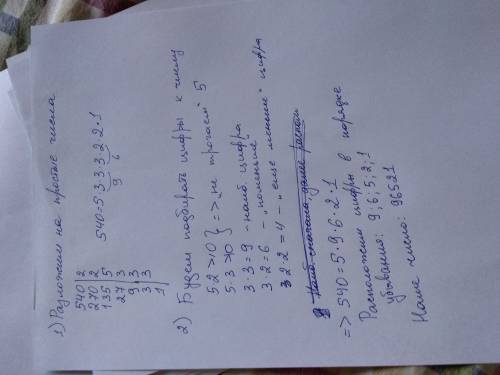 1) Разложим на простые числа
540 | 2
270 | 2
135 | 5
27 | 3
9 | 3
3 | 3
1
540=5·3·3·3·2·2·1
9 6
2) Будем подбирать цифры к числу
5·2≥10 } => „не трогаем" 5
5·3>10
3·3=9 - наиб. цифра
3·2=6 - „поменьше"
2·2=4 - „еще меньше" цифра
=> 540=5·9·6·2·1
Расположим цифры в порядке
убывания: 9;6;5;2;1
Наше число: 96521